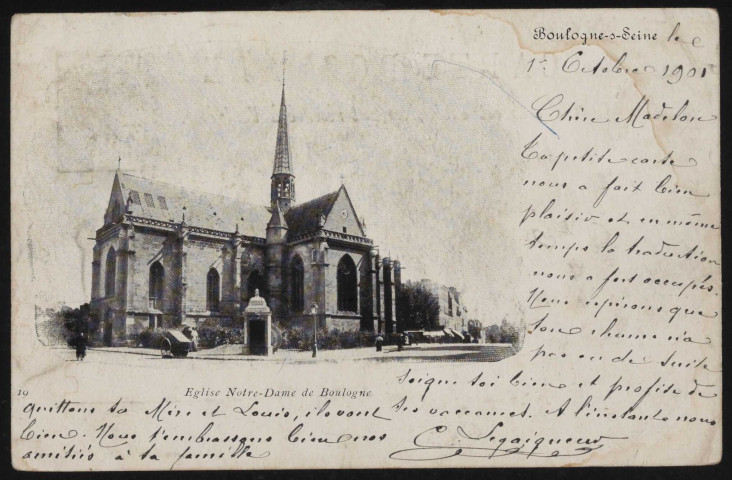 Boulogne-s-Seine le
1er Octobre 1901
Chère Madelon
Ta petite carte
nous a fait bien
plaisir et en même
temps la traduction
nous a fort occupés.
Nous espérons que
ton rhume n'a
pas eu de suite
soigne toi bien et profite de
tes vacances. A l'instant nous
quittons ta Mère et Louis, ils vont
bien. Nous t'embrassons bien nos
amitiés à ta famille
C. Legaigneur
19
Eglise Notre-Dame de Boulogne